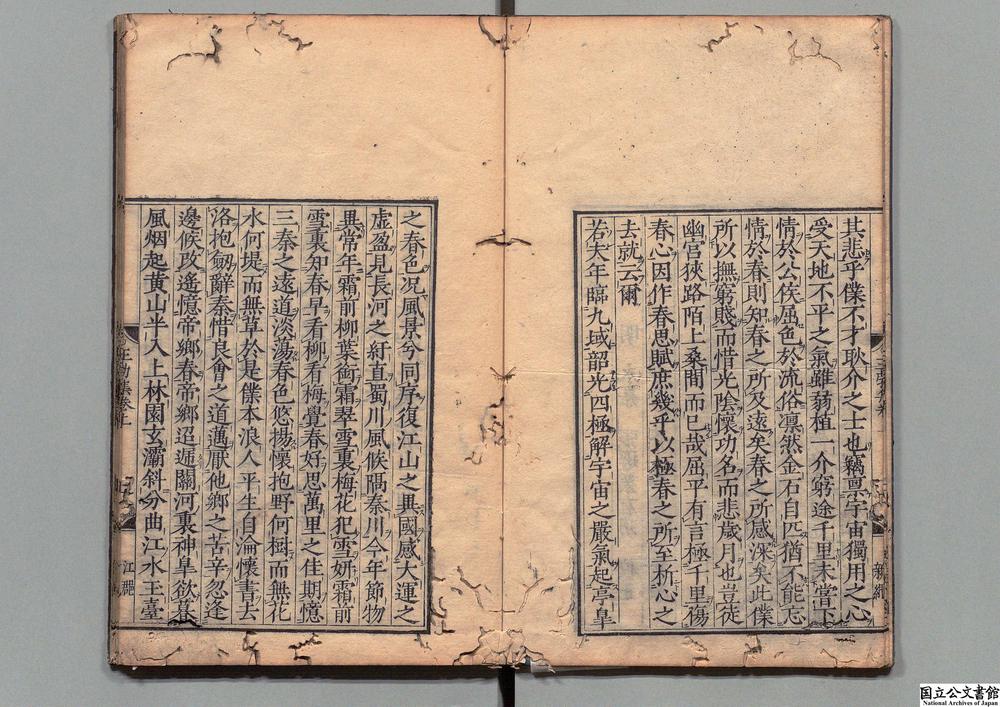 其悲乎僕不才耿介之士也竊禀宇宙獨用之心
受天地不平之氣雖弱植一介窮途千里未嘗下
情於公侯屈色於流俗凛然金石自匹猶不能忘
情於春則知春之所及遠矣春之所感深矣此僕
所以撫窮賤而惜光陰懷功名而悲歲月也豈徒
幽宮狹路陌上桑間而已哉屈平有言極千里傷
春心因作春思賦庶幾乎以極春之所至析心之
去就云爾
若夫年臨九域韶光四極解宇宙之嚴氣起亭皐
之春色况風景兮同序復江山之異國感大運之
虚盈見長河之紆直蜀川風候隔秦川今年節物
異常年霜前柳葉銜霜翠雪裏梅花犯雪妍霜前
雪裏知春早看柳看梅覺春好思萬里之佳期憶
三秦之遠道淡蕩春色悠揚懷抱野何樹而無花
水何堤而無草於是僕本浪人平生自淪懷書去
洛抱劒辭秦惜良會之道邁厭他鄉之苦辛忽逢
邊候改遙憶帝鄉春帝鄉迢遞關河裏神皐欲暮
風烟起黄山半入上林園玄灞斜分曲江水玉臺
江龍
国立公文書館
National Archives of Japan